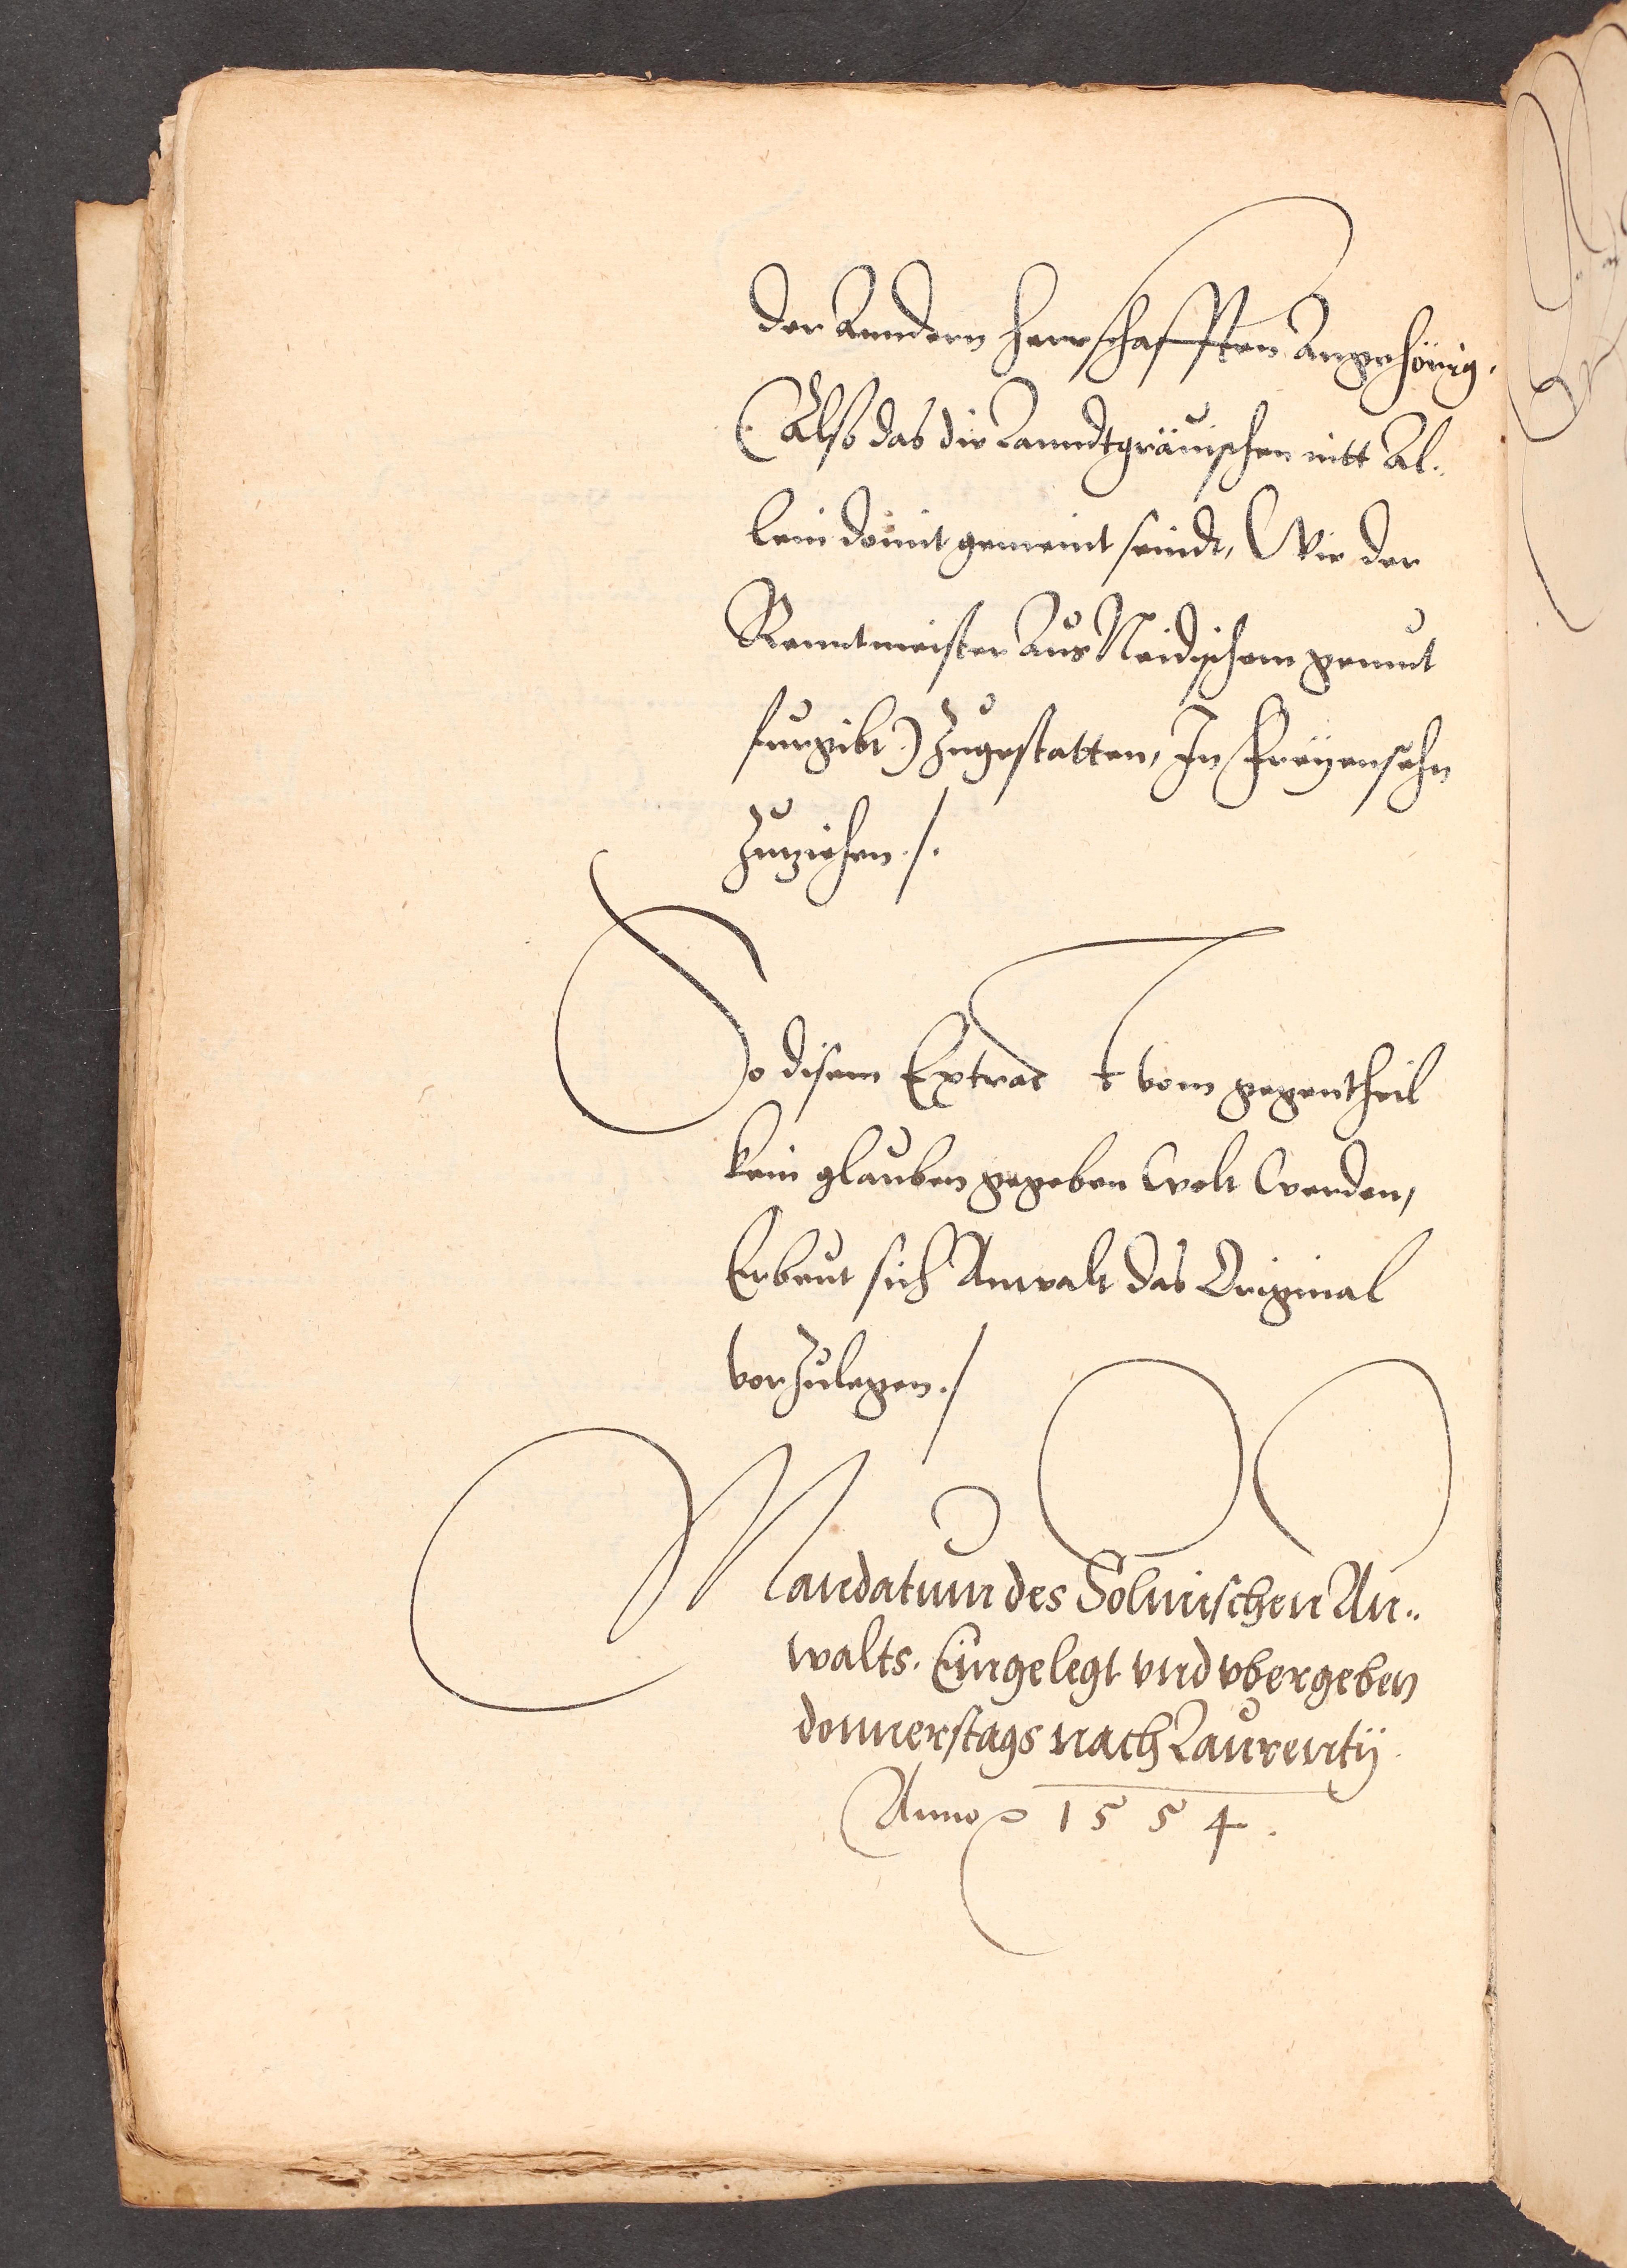 der Anndern herrschafften Angehörig.
(Also das die Lanndtgräuischen nitt Al„
lein domit gemeint seindt, Wie der
Renntmeister Aus Neidischem gemut
furgibt.) Zugestatten, In Freyensehn
Zuziehen./.
So disem Extract vom gegentheil
kein glauben gegeben wolt werden,
Erbeut sich Anwalt das Original
vorzulegen./
Mandatum des Solmischen An„
walts. Eingelegt vnd vbergeben
donnerstags nach Laurentij.
Anno 1554.